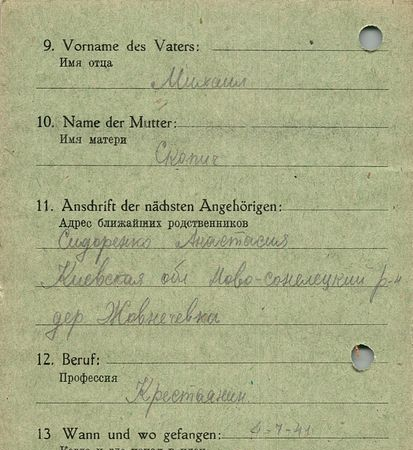 9. Vorname des Vaters:
Имя отца
Михаил
10. Name der Mutter:
Имя матери
Скопич
11. Anschrift der nächsten Angehörigen:
Адрес ближайших родственников
Сидоренко Анастасия
Киевская обл Ново-сонелецкий р-н
дер Жовнечевка
12. Beruf:
Профессия
Крестьянин
13 Wann und wo gefangen: 5-7-41